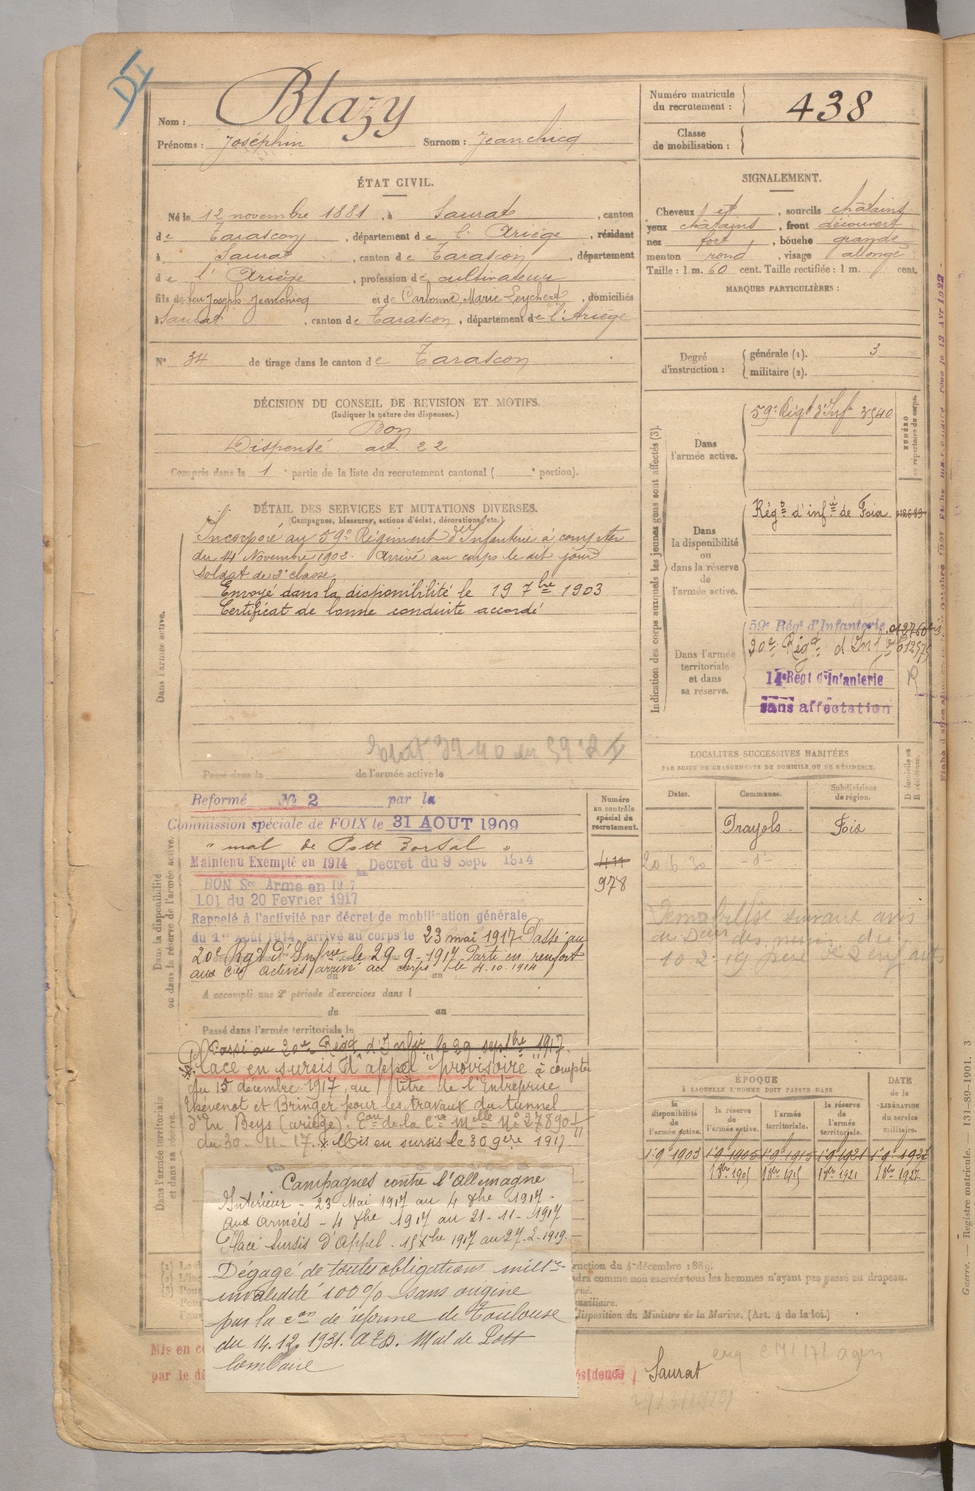 DI
Nom : Blazy
Prénoms : Joséphin Surnom : Jeanchicq
Numéro matricule du recrutement : 438
Classe de mobilisation :
ÉTAT CIVIL.
Né le 12 novembre 1881, à Saurat, canton
de Tarascon, département de l'Ariège, résidant
à Saurat, canton de Tarascon, département
de l'Ariège, profession de cultivateur
fils de feu Joseph Jeanchicq et de Carbonne Marie, domiciliés
à Saurat, canton de Tarascon, département de l'Ariège
N° 34 de tirage dans le canton de Tarascon
SIGNALEMENT.
Cheveux et, sourcils châtains
yeux châtains, front découvert
nez fort, bouche grande
menton rond, visage allongé
Taille : 1 m. 60 cent. Taille rectifiée : 1 m. cent.
MARQUES PARTICULIÈRES :
Degré d'instruction : générale (1). 3
militaire (2).
DÉCISION DU CONSEIL DE REVISION ET MOTIFS.
(Indiquer la nature des dispenses.)
Bon
Dispensé art. 22
Compris dans la 1 partie de la liste du recrutement cantonal ( portion).
DÉTAIL DES SERVICES ET MUTATIONS DIVERSES.
(Campagnes, blessures, actions d'éclat, décorations, etc.)
Dans l'armée active.
Incorporé au 59e Régiment d'Infanterie à compter
du 14 Novembre 1902. Arrivé au corps le dit jour
soldat de 2e classe
Envoyé dans la disponibilité le 19 7bre 1903
Certificat de bonne conduite accordé
Passé dans la de l'armée active le
Indication des corps auxquels les jeunes gens sont affectés (3).
Dans l'armée active.
59e Régt d'Inf 3940
NUMÉRO
Dans la disponibilité ou dans la réserve de l'armée active.
Régt d'infie de Foix
Dans l'armée territoriale et dans sa réserve.
59e Régt d'Infanterie
20e Régt d'Inf
14e Régt d'Infanterie
sans affectation
R
LOCALITÉS SUCCESSIVES HABITÉES
PAR SUITE DE CHANGEMENTS DE DOMICILE OU DE RÉSIDENCE.
Dates. Communes. Subdivisions de région. D domicile ou R résidence.
Prayols. Foix
20.6.30 - d°
Dans la disponibilité ou dans la réserve de l'armée active.
Reformé No 2 par la
Commission spéciale de FOIX le 31 AOUT 1909
" mal de Pott dorsal "
Maintenu Exempté en 1914 Decret du 9 Sept 1914
BON Sce Armé en 1917
LOI du 20 Fevrier 1917
Rappelé à l'activité par décret de mobilisation générale
du 1er août 1914, arrivé au corps le 23 mai 1917. Passé au
20e Régt d'Infrie le 29-9-1917. Parti en renfort
aux Cies actives, arrivé au corps le 4.10.1917
A accompli une 2e période d'exercices dans l
du au
Numéro au contrôle spécial du recrutement.
978
Passé dans l'armée territoriale le
Passé au 20e Régt d'Infie le 29 septbre 1917.
Dans l'armée territoriale et dans sa réserve.
Placé en sursis d'appel "provisoire" à compter
du 15 décembre 1917 au titre de l'Entreprise
Thévenot et Bringer pour les travaux du tunnel
du 30-11-17. Mis en sursis le 30 9bre 1917.
ÉPOQUE
À LAQUELLE L'HOMME DOIT PASSER DANS
la disponibilité de l'armée active. la réserve de l'armée active. l'armée territoriale. la réserve de l'armée territoriale.
DATE de la LIBÉRATION du service militaire.
1 9e 1903 1 9e 1905 1 9e 1915 1 9e 1921 1 9e 1927
Campagnes contre l'Allemagne
Intérieur - 23 Mai 1917 au 4 8bre 1917 -
Aux armées - 4 8bre 1917 au 21-11-1917
Placé Sursis d'Appel. 15 Xbre 1917 au 27-2-1919.
Dégagé de toutes obligations milit
invalidité 100% sans origine
par la Con de réforme de Toulouse
du 14.12.1931. Mal de Pott
lombaire
dra comme non exercés tous les hommes n'ayant pas passé au drapeau.
disposition du Ministre de la Marine. (Art. 4 de la loi.)
Mis en
par le
Saurat
Guerre. — Registre matricule. — 131-89-1901. 3